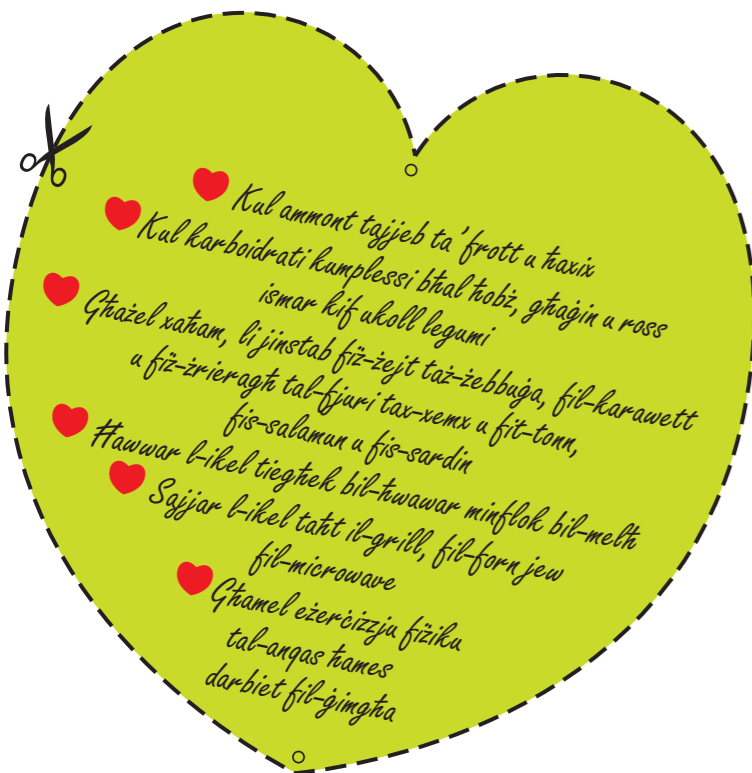 Kul ammont tajjeb ta' frott u ħaxix
Kul karboidrati kumplessi bħal ħobż, għaġin u ross
ismar kif ukoll legumi
Għażel xaħam, li jinstab fiż-żejt taż-żebbuġa, fil-karawett
u fiż-żrieragħ tal-fjuri tax-xemx u fit-tonn,
fis-salamun u fis-sardin
Ħawwar l-ikel tiegħek bil-ħwawar minflok bil-melħ
Sajjar l-ikel taħt il-grill, fil-forn jew
fil-microwave
Għamel eżerċizzju fiżiku
tal-anqas ħames
darbiet fil-ġimgħa